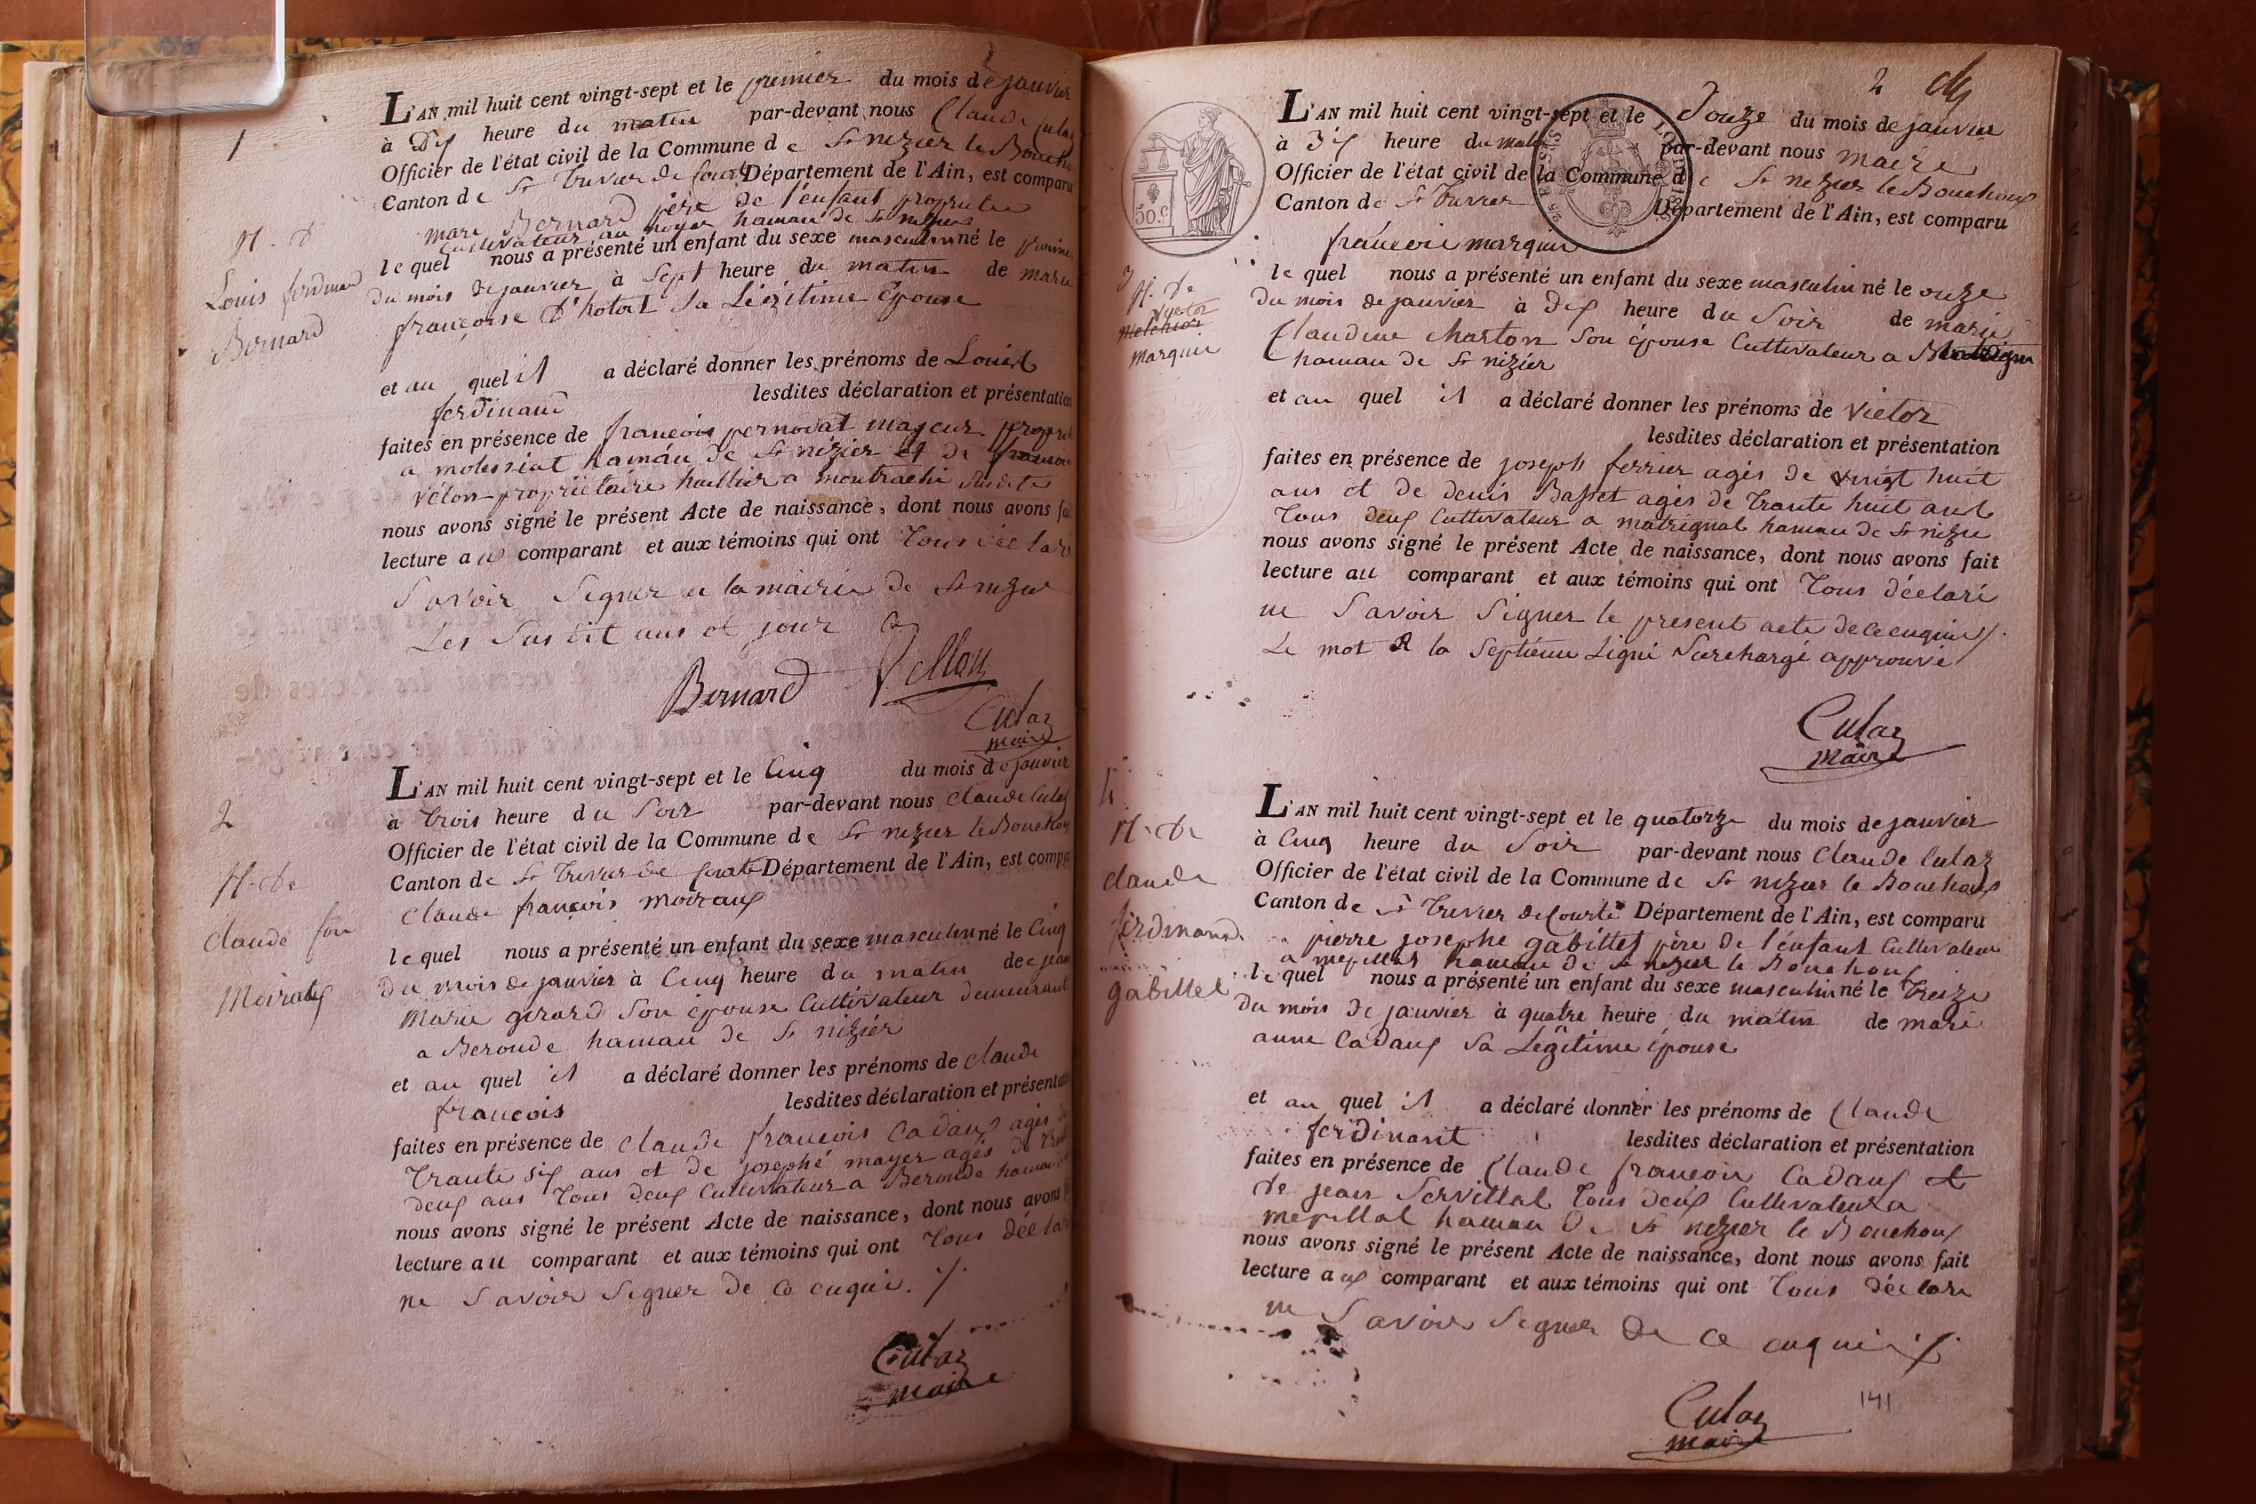 1
L'AN mil huit cent vingt-sept et le premier du mois de janvier
à Dix heure du matin par-devant nous Claude Culaz
Officier de l'état civil de la Commune de St nizier le Bouchoux
Canton de St Trivier de Court Département de l'Ain, est comparu
marc Bernard père de l'enfant proprietre
Cultivateur au noyer hamau de St nizier
le quel nous a présenté un enfant du sexe masculin né le premier
du mois de janvier à Sept heure du matin de marie
françoise D'hotel Sa Légitime Epouse
N. d
Louis ferdinand
Bernard
et au quel il a déclaré donner les prénoms de Louis
ferdinand lesdites déclaration et présentation
faites en présence de françois pernodat mayeur propri
a molissiat hamau de St nizier et de
vélon propriétaire huillier a montrachi
nous avons signé le présent Acte de naissance, dont nous avons fai
lecture au comparant et aux témoins qui ont Tous déclaré
Savoir Signer a la mairie de St nizier
Les Sus dit ans et jour
Bernard Vellon
Culaz
maire
2
L'AN mil huit cent vingt-sept et le Cinq du mois de janvier
à trois heure du Soir par-devant nous Claude Culaz
Officier de l'état civil de la Commune de St nizier le Bouchoux
Canton de St Trivier de Court Département de l'Ain, est compar
Claude françois moiraux
N. de
Claude fois
Moiraux
le quel nous a présenté un enfant du sexe masculin né le Cinq
du mois de janvier à Cinq heure du matin de jean
Marie girard Son épouse Cultivateur demeurant
a Beronde hamau de St nizier
et au quel il a déclaré donner les prénoms de Claude
françois lesdites déclaration et présentat
faites en présence de Claude françois Cadaux agés
Trante six ans et de josephé mayer agés de
deux ans Tous deux Cultivateur a Beronde hamau
nous avons signé le présent Acte de naissance, dont nous avons
lecture au comparant et aux témoins qui ont Tous déclar
ne Savoir Signer de ce enquis ./.
Culaz
maire
2
50.C
L'AN mil huit cent vingt-sept et le Douze du mois de janvier
à Dix heure du matin par-devant nous maire
Officier de l'état civil de la Commune de St nizier le Bouchoux
Canton de St Trivier Département de l'Ain, est comparu
françois marquis
3
N. de
Victor
Melchior
Marquis
le quel nous a présenté un enfant du sexe masculin né le onze
du mois de janvier à Dix heure du Soir de marie
Claudine Charton Son épouse Cultivateur a
hamau de St nizier
et au quel il a déclaré donner les prénoms de Victor
lesdites déclaration et présentation
faites en présence de joseph ferrier agés de vingt huit
ans et de denis Basset agés de Trante huit ans
Tous deux Cultivateur a matrignat hamau de St nizier
nous avons signé le présent Acte de naissance, dont nous avons fait
lecture au comparant et aux témoins qui ont Tous déclaré
ne Savoir Signer le present acte de ce enquis ./.
Le mot a la Septieme Ligne Surchargé approuvé
Culaz
Maire
4
L'AN mil huit cent vingt-sept et le quatorze du mois de janvier
à Cinq heure du Soir par-devant nous Claude Culaz
Officier de l'état civil de la Commune de St nizier le Bouchoux
Canton de St Trivier de Courte Département de l'Ain, est comparu
pierre josephe gabillet père de l'enfant Cultivateur
a mepillat hamau de St nizier le Bouchoux
N. de
Claude
ferdinand
gabillet
le quel nous a présenté un enfant du sexe masculin né le Treize
du mois de janvier à quatre heure du matin de marie
anne Cadaux Sa Légitime épouse
et au quel il a déclaré donner les prénoms de Claude
ferdinant lesdites déclaration et présentation
faites en présence de Claude françois Cadaux et
de jean Servillat Tous deux Cultivateur a
mepillat hamau de St nizier le Bouchoux
nous avons signé le présent Acte de naissance, dont nous avons fait
lecture aux comparant et aux témoins qui ont Tous déclaré
ne Savoir Signer de ce enquis ./.
Culaz
maire
141